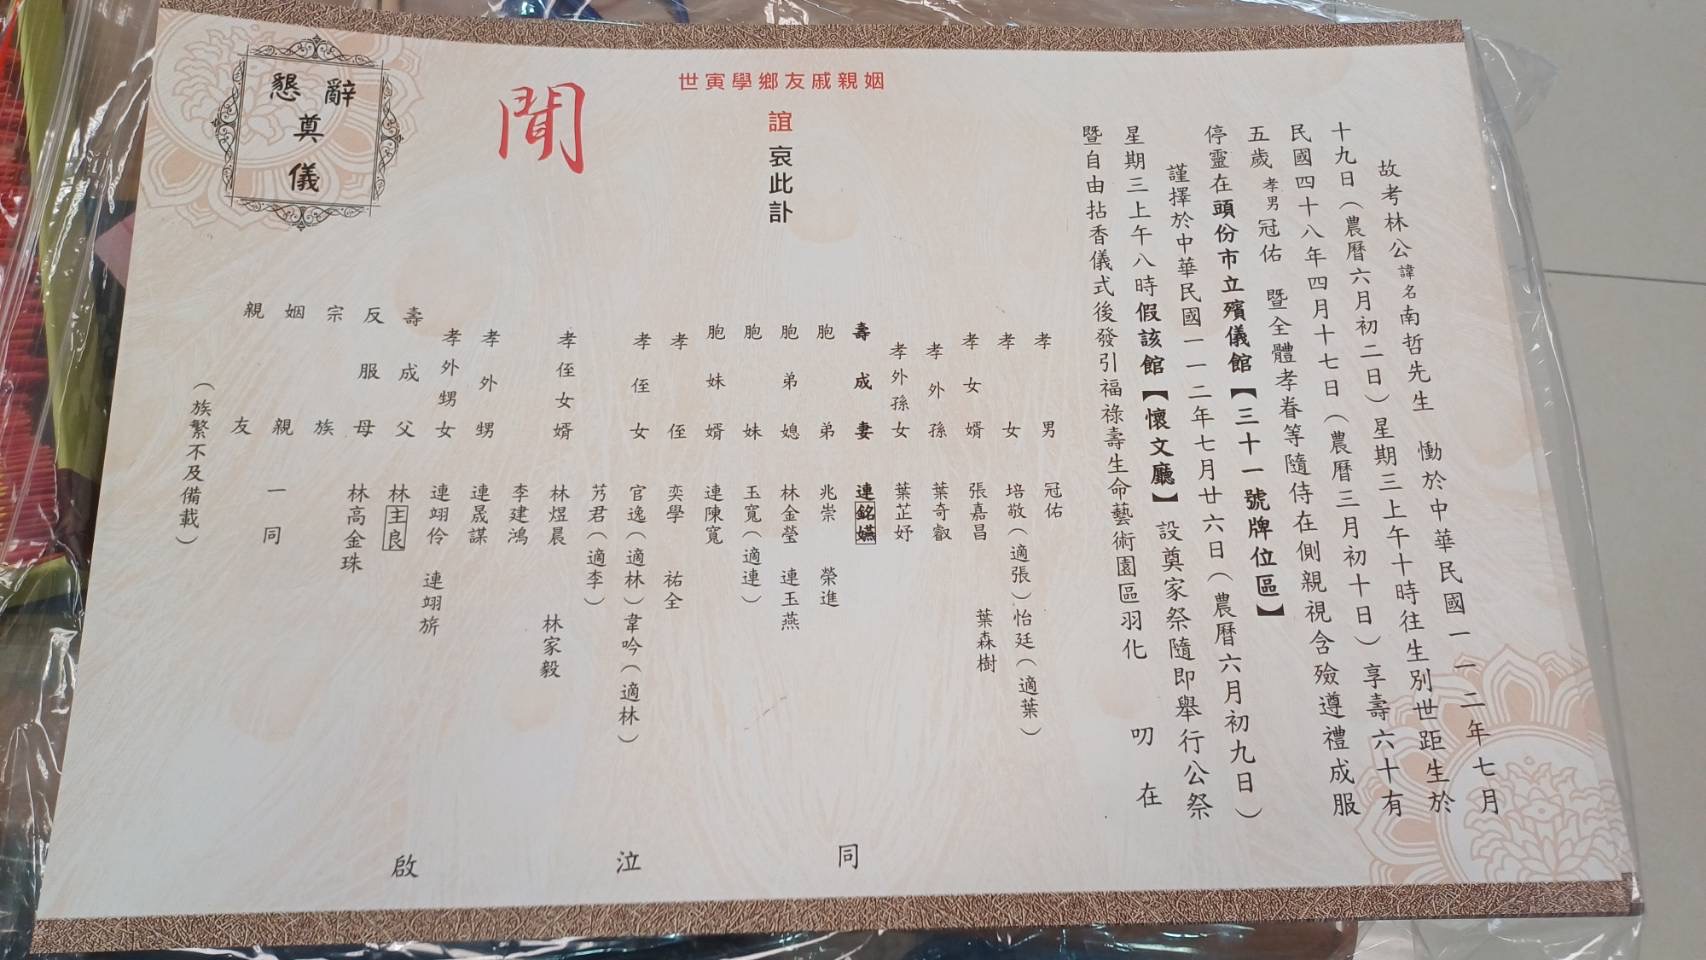 故考林公諱名南哲先生 慟於中華民國一一二年七月
十九日（農曆六月初二日）星期三上午十時往生別世距生於
民國四十八年四月十七日（農曆三月初十日）享壽六十有
五歲 孝男冠佑 暨全體孝眷等隨侍在側親視含殮遵禮成服
停靈在頭份市立殯儀館【三十一號牌位區】
謹擇於中華民國一一二年七月廿六日（農曆六月初九日）
星期三上午八時假該館【懷文廳】設奠家祭隨即舉行公祭
暨自由拈香儀式後發引福祿壽生命藝術園區羽化 叨 在
世寅學鄉友戚親姻
誼 哀此訃
聞
孝男 冠佑
孝女 培敬（適張）怡廷（適葉）
孝女婿 張嘉昌 葉森樹
孝外孫 葉奇叡
孝外孫女 葉芷妤
壽成妻 連銘嬿
胞弟 兆崇 榮進
胞弟媳 林金瑩 連玉燕
胞妹 玉寬（適連）
胞妹婿 連陳寬
孝侄 奕學 祐全
孝侄女 官逸（適林）韋吟（適林）
艿君（適李）
孝侄女婿 林煜晨 林家毅
李建鴻
孝外甥 連晟謀
孝外甥女 連翊伶 連翊旂
壽成父 林主良
反服母 林高金珠
宗族
姻親 一同
親友
（族繁不及備載）
同 泣 啟
懇辭
奠
儀